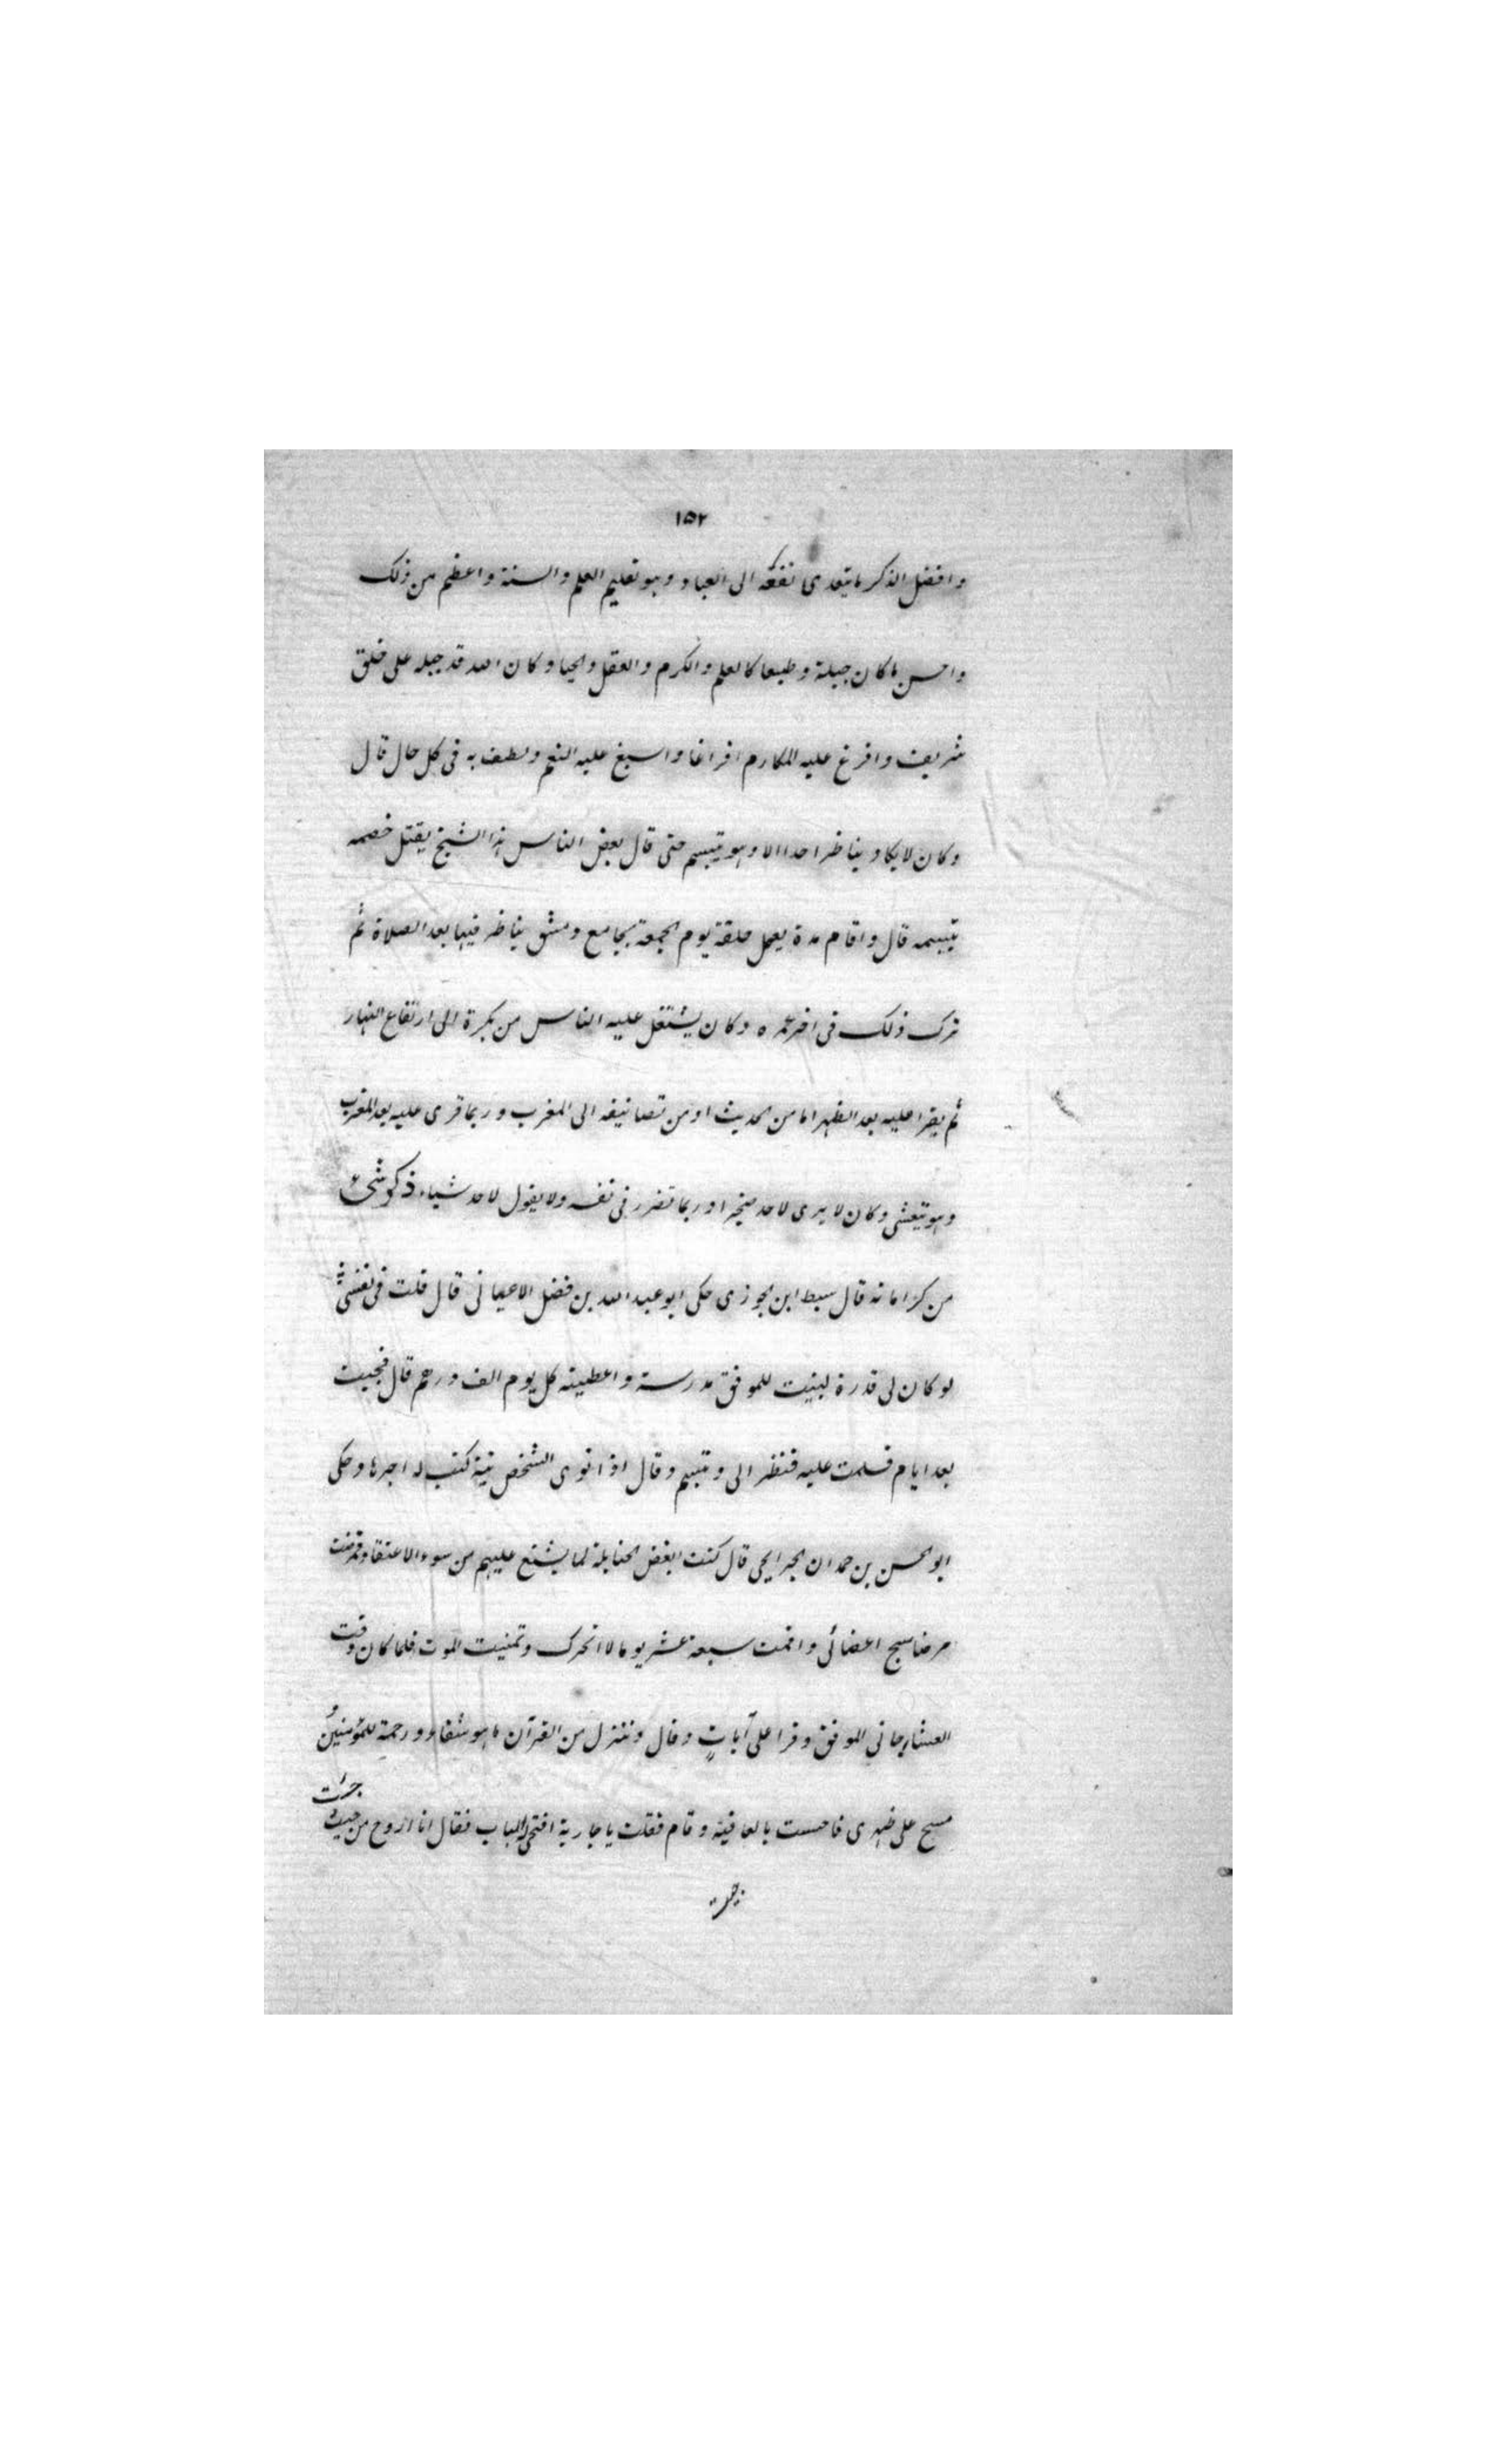 ١٥٢
وافضل الذكر ما يتعدى نفعه الى العباد وهو تعليم العلم والسنة واعظم من ذلك
واحسن ما كان جبلة وطبعا كالعلم والكرم والعقل والحيا وكان الله قد جبله على خلق
شريف وافرغ عليه المكارم افراغا واسبغ عليه النعم ولطف به فى كل حال قال
وكان لا يكاد يناظر احدا الا وهو يتبسم حتى قال بعض الناس هذا الشيخ يقتل خصمه
بتبسمه قال واقام مدة يعمل حلقة يوم الجمعة بجامع دمشق يناظر فيها بعد الصلاة ثم
ترك ذلك فى اخر عمره وكان يشتغل عليه الناس من بكرة الى ارتفاع النهار
ثم يقرا عليه بعد الظهر اما من الحديث او من تصانيفه الى المغرب وربما قرى عليه بعد المغرب
وهو يتعشى وكان لا يرى لاحد ضجرا وربما تضرر فى نفسه ولا يقول لاحد شياء ذكر شئ
من كراماته قال سبط ابن الجوزى حكى ابو عبد الله بن فضل الاعيانى قال قلت فى نفسى
لو كان لى قدرة لبنيت للموفق مدرسة واعطيته كل يوم الف درهم قال فجيت
بعد ايام فسلمت عليه فنظر الى وتبسم وقال اذا نوى الشخص نية كتب له اجرها وحكى
ابو الحسن بن حمدان الجرايحى قال كنت ابغض الحنابلة لما يشنع عليهم من سوء الاعتقاد فمرضت
مرضا سبج اعضائى واقمت سبعة عشر يوما لا اتحرك وتمنيت الموت فلما كان وقت
العشا جانى الموفق وقرا على آيات وقال وننزل من القرآن ما هو شفاء ورحمة للمؤمنين و
مسح على ظهرى فاحست بالعافية وقام فقلت يا جارية افتحى له الباب فقال انا اروح من حيث
جئت